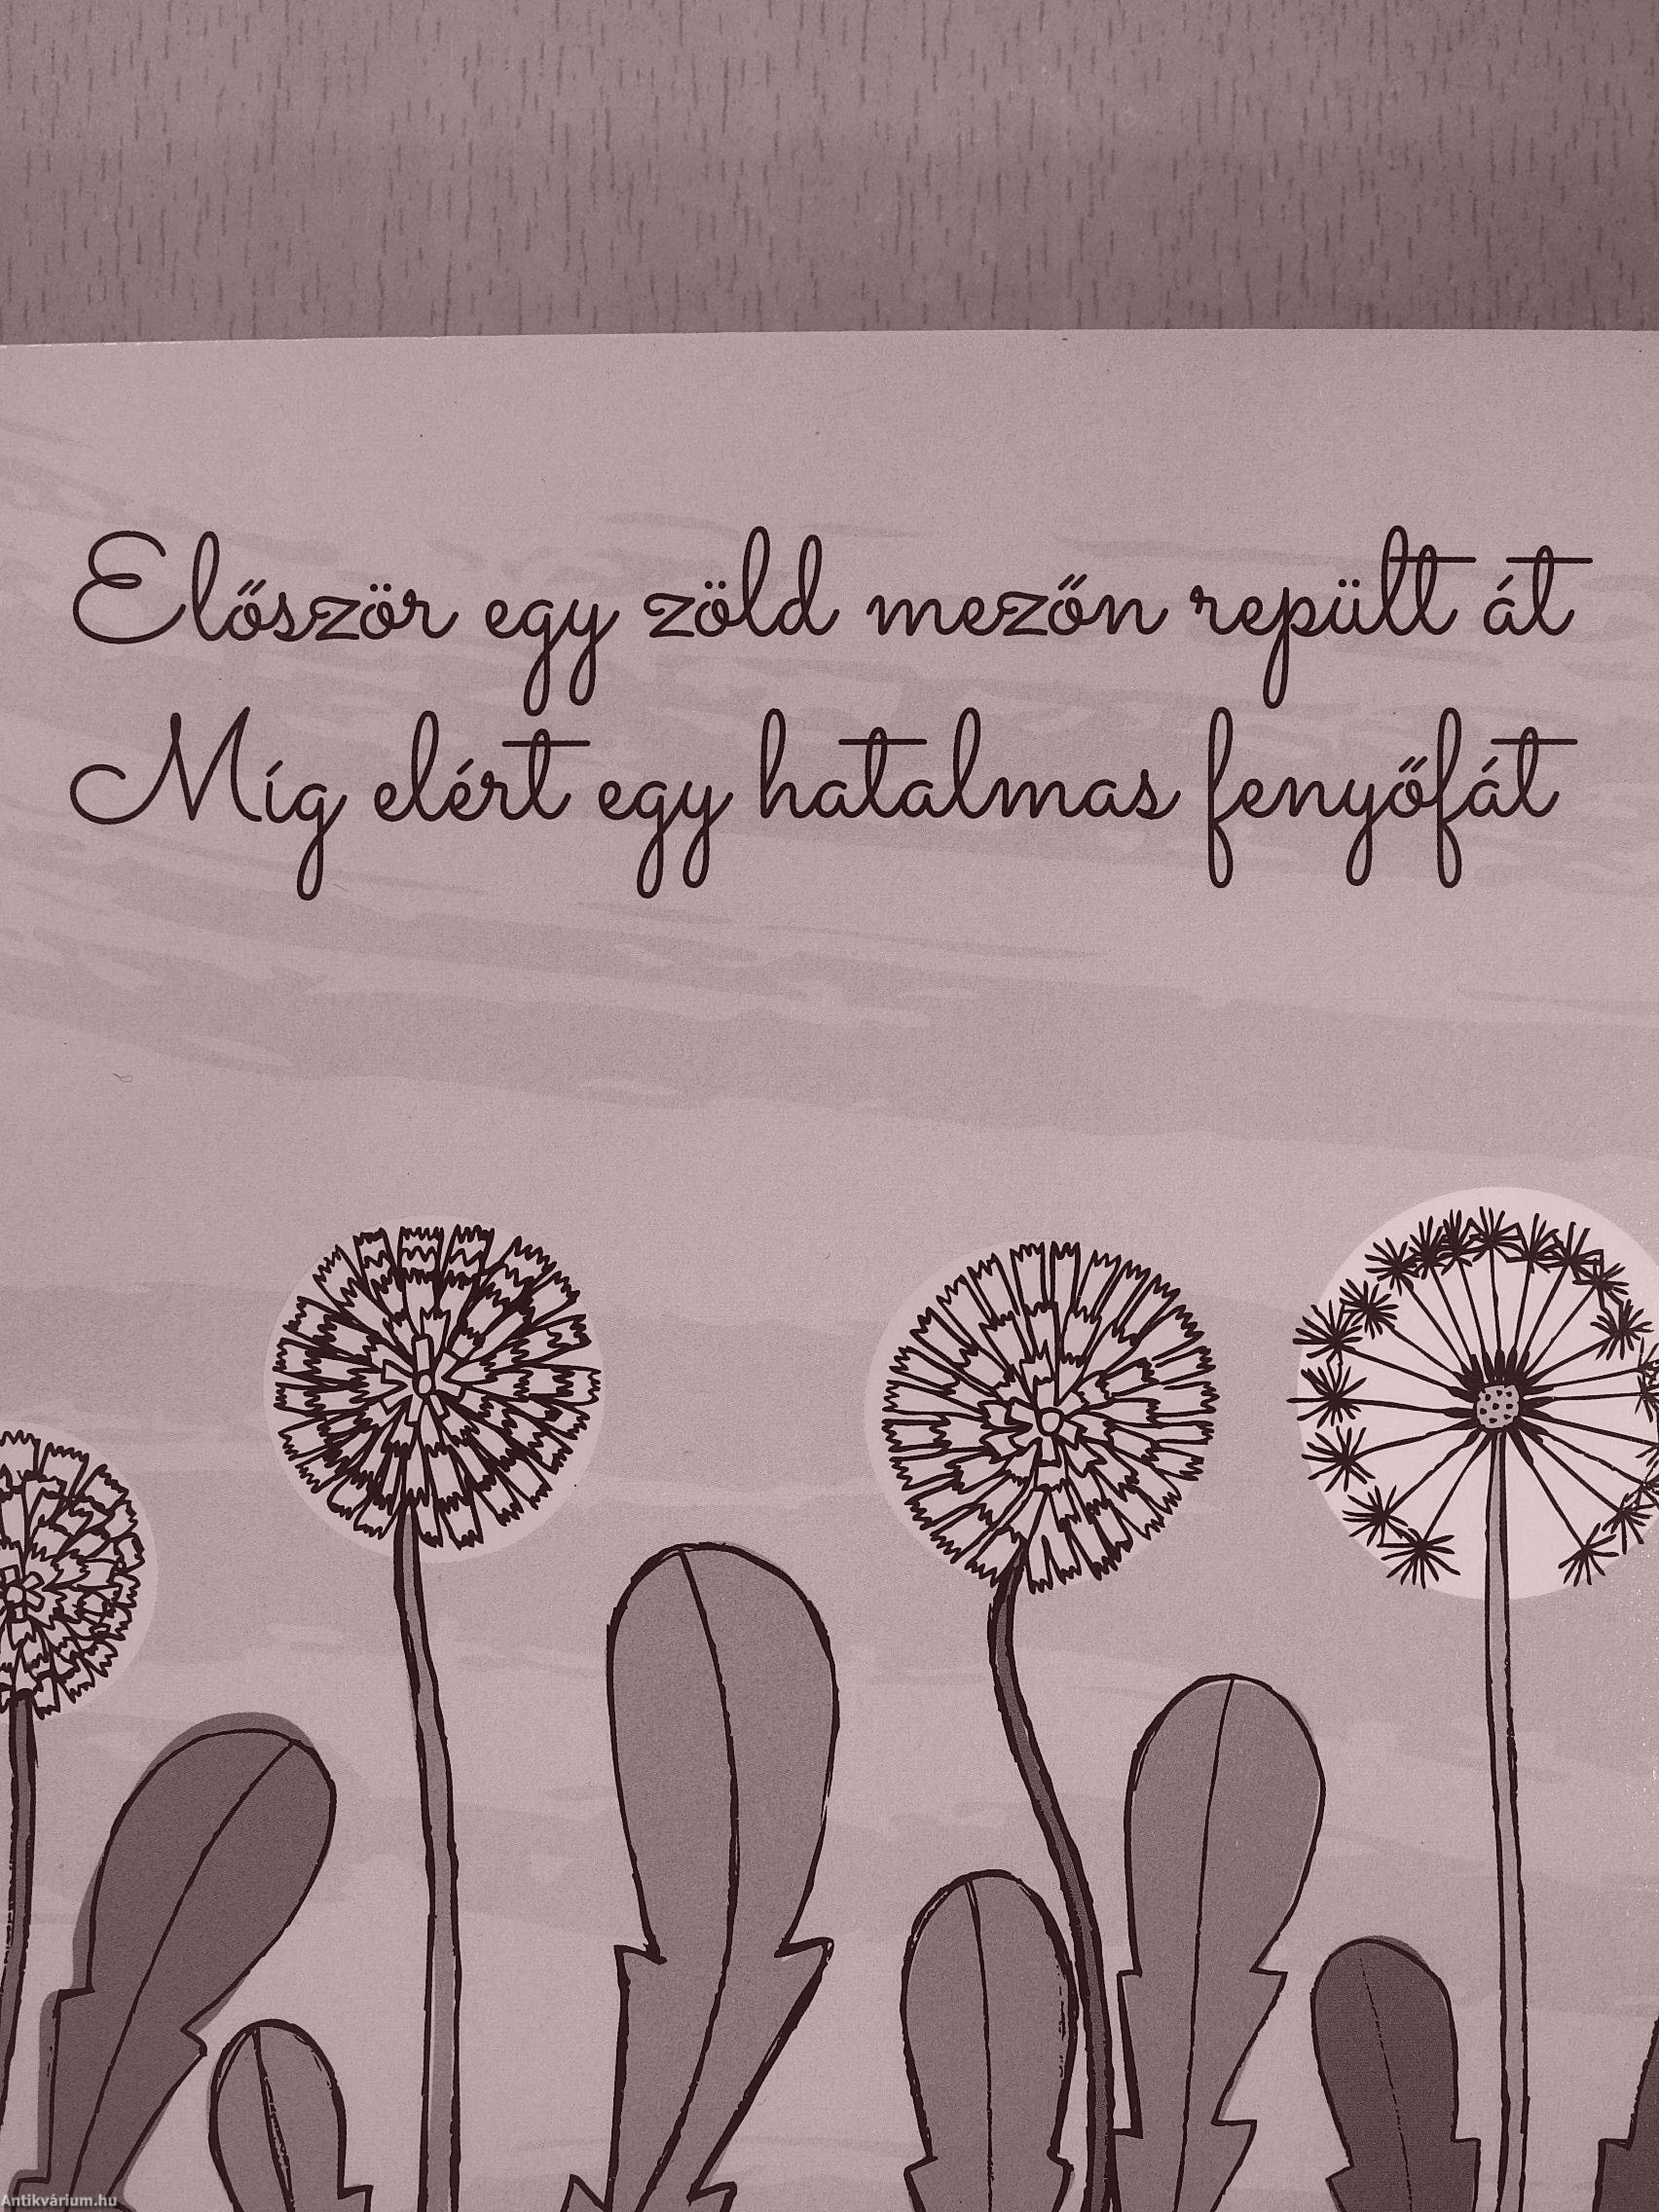 Először egy zöld mezőn repült át
Míg elért egy hatalmas fenyőfát
Antikvárium.hu